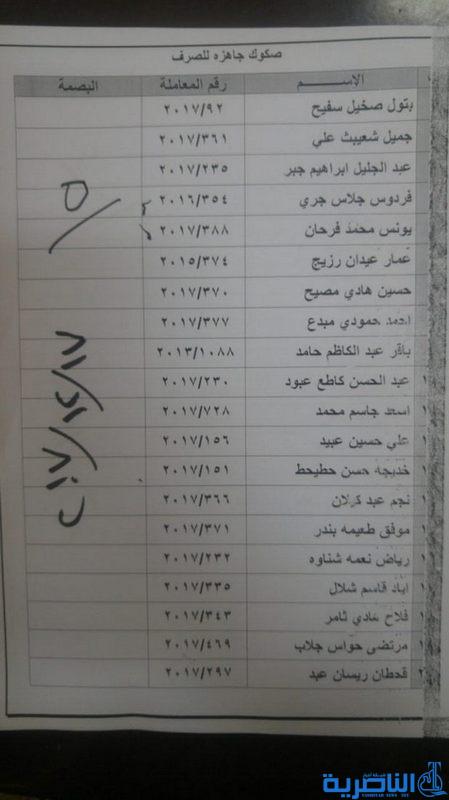 صكوك جاهزه للصرف
الإســـم رقم المعاملة البصمة
بتول صخيل سفيح ٢٠١٧/٩٢
جميل شعيبث علي ٢٠١٧/٣٦١
عبد الجليل ابراهيم جبر ٢٠١٧/٢٣٥
فردوس جلاس جري ٢٠١٦/٣٥٤
يونس محمد فرحان ٢٠١٧/٣٨٨
عمار عيدان رزيج ٢٠١٥/٣٧٤
حسين هادي مصيح ٢٠١٧/٣٧٠
احمد حمودي مبدع ٢٠١٧/٣٧٧
باقر عبد الكاظم حامد ٢٠١٣/١٠٨٨
عبد الحسن كاطع عبود ٢٠١٧/٢٣٠
اسعد جاسم محمد ٢٠١٧/٧٢٨
علي حسين عبيد ٢٠١٧/١٥٦
خديجه حسن حطيحط ٢٠١٧/١٥١
نجم عبد كيلان ٢٠١٧/٣٦٦
موفق طعيمه بندر ٢٠١٧/٣٧١
رياض نعمه شناوه ٢٠١٧/٢٣٢
اياد قاسم شلال ٢٠١٧/٣٣٥
فلاح هادي ثامر ٢٠١٧/٣٤٣
مرتضى حواس جلاب ٢٠١٧/٤٦٩
قحطان ريسان عبد ٢٠١٧/٢٩٧
٢٠١٧/١٢/١٧
شبكة اخبار
الناصرية